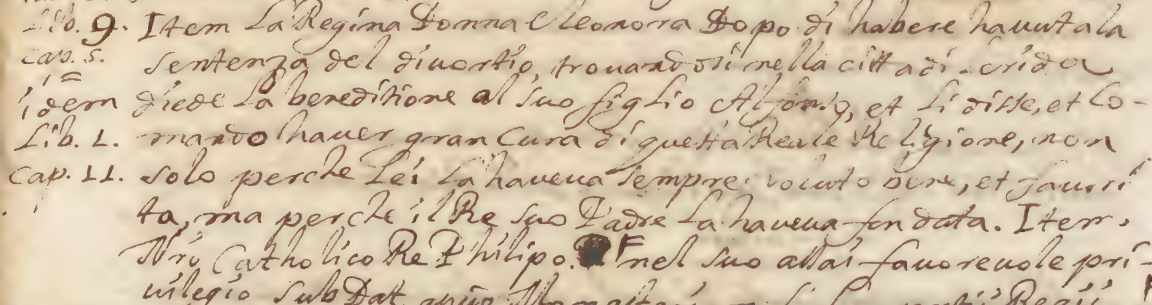 Lib. 9. Item La Regina Donna Eleonorra Dopo di habere havuta la
cap. 5. sentenza del divortio, trovandosi nella citta di Lerida
idem diede La beneditione al suo figlio Alfonso, et li disse, et Co-
Lib. 1. mando haver gran Cura di questa Reale Religione, non
cap. 11. solo perche Lei La haveva sempre voluto bene, et favori
ta, ma perche il Re suo Padre La haveva fundata. Item,
Nro Catholico Re Philipo. nel suo assai favorevole pri-
vilegio sub Dat